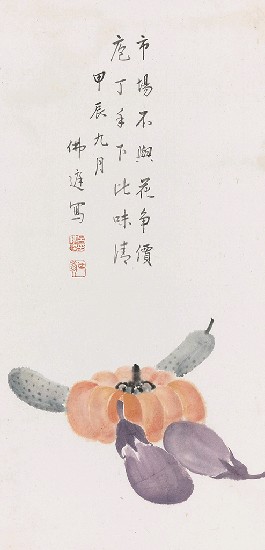 市場不與花争價
庖丁手下比味清
甲辰九月
佛庭寫